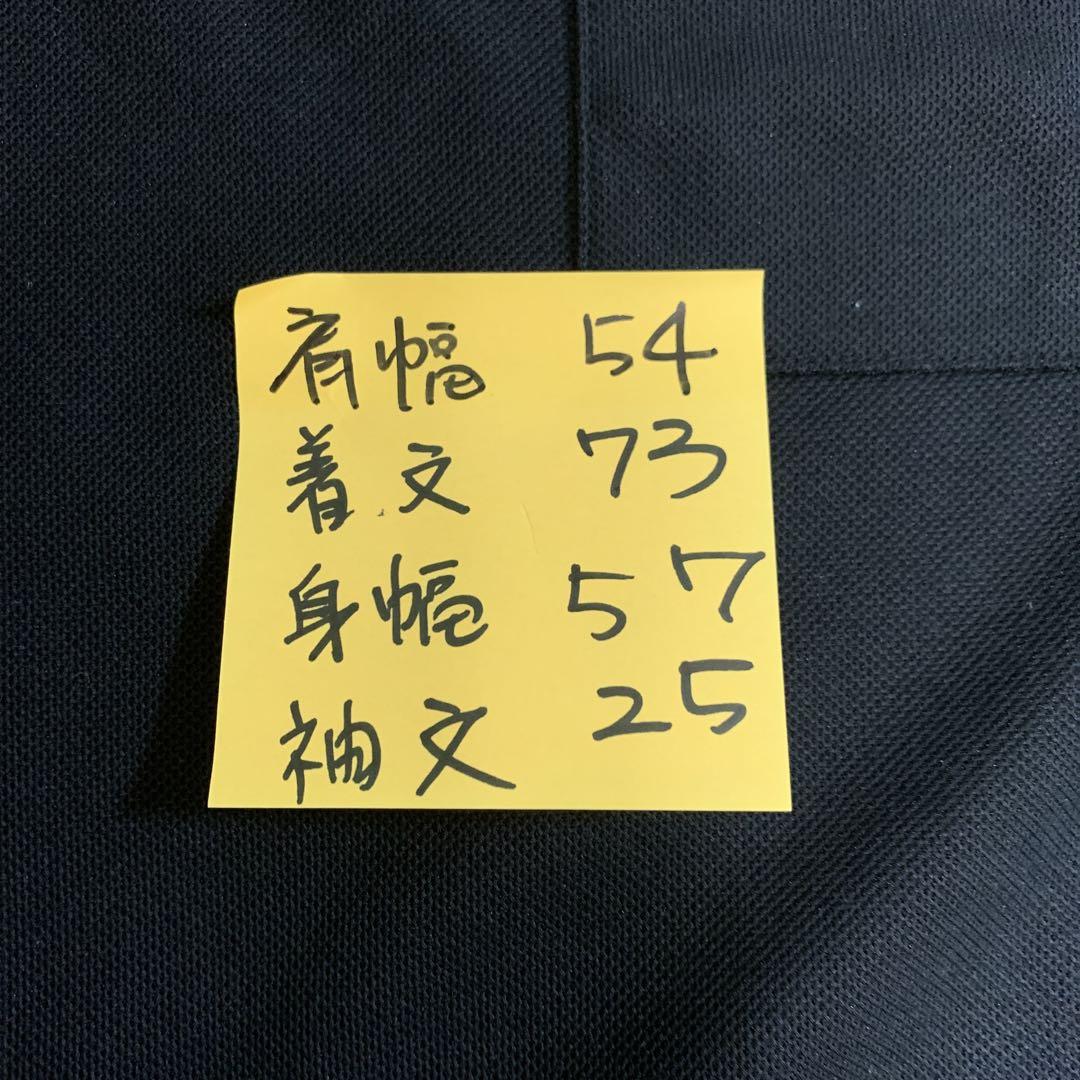 肩幅 54
着丈 73
身幅 57
袖丈 25